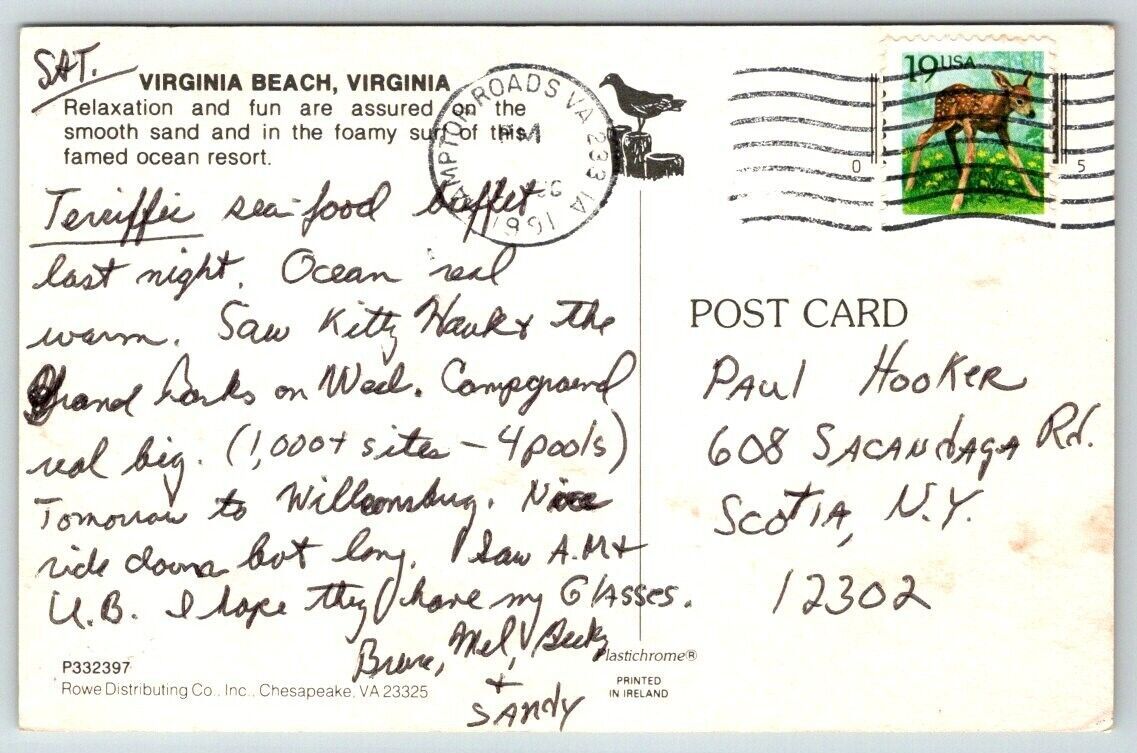 SAT.
VIRGINIA BEACH, VIRGINIA
Relaxation and fun are assured on the
smooth sand and in the foamy surf of this
famed ocean resort.
Terriffic sea-food buffet
last night. Ocean real
warm. Saw Kitty Hawk & the
grand banks on Wed. Campground
real big. (1,000+ sites – 4 pools)
Tomorrow to Williamsburg. Nice
ride down but long. I saw A.M &
U.B. I hope they have my GlASSES.
Bruce, Mel, Becky
+
SANdy
P332397
Rowe Distributing Co., Inc., Chesapeake, VA 23325
HAMPTON ROADS VA 233
PM
1991
19 USA
0
5
POST CARD
PAUl HOOKER
608 SACANdAGA Rd.
SCOTIA, N.Y.
12302
Plastichrome®
PRINTED
IN IRELAND